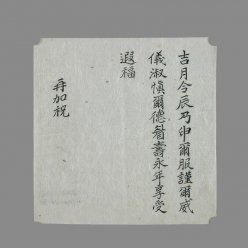 吉月令辰乃申爾服謹爾威
儀淑愼爾德眉壽永年享受
遐福
再加祝